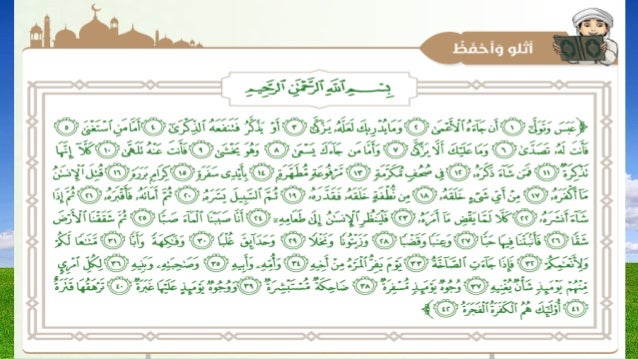 أَتْلُو وَأَحْفَظُ
بِسْمِ اللَّهِ الرَّحْمَٰنِ الرَّحِيمِ
﴿عَبَسَ وَتَوَلَّىٰ ۝١ أَن جَاءَهُ الْأَعْمَىٰ ۝٢ وَمَا يُدْرِيكَ لَعَلَّهُ يَزَّكَّىٰ ۝٣ أَوْ يَذَّكَّرُ فَتَنفَعَهُ الذِّكْرَىٰ ۝٤ أَمَّا مَنِ اسْتَغْنَىٰ ۝٥
فَأَنتَ لَهُ تَصَدَّىٰ ۝٦ وَمَا عَلَيْكَ أَلَّا يَزَّكَّىٰ ۝٧ وَأَمَّا مَن جَاءَكَ يَسْعَىٰ ۝٨ وَهُوَ يَخْشَىٰ ۝٩ فَأَنتَ عَنْهُ تَلَهَّىٰ ۝١٠ كَلَّا إِنَّهَا
تَذْكِرَةٌ ۝١١ فَمَن شَاءَ ذَكَرَهُ ۝١٢ فِي صُحُفٍ مُّكَرَّمَةٍ ۝١٣ مَّرْفُوعَةٍ مُّطَهَّرَةٍ ۝١٤ بِأَيْدِي سَفَرَةٍ ۝١٥ كِرَامٍ بَرَرَةٍ ۝١٦ قُتِلَ الْإِنسَانُ
مَا أَكْفَرَهُ ۝١٧ مِنْ أَيِّ شَيْءٍ خَلَقَهُ ۝١٨ مِن نُّطْفَةٍ خَلَقَهُ فَقَدَّرَهُ ۝١٩ ثُمَّ السَّبِيلَ يَسَّرَهُ ۝٢٠ ثُمَّ أَمَاتَهُ فَأَقْبَرَهُ ۝٢١ ثُمَّ إِذَا
شَاءَ أَنشَرَهُ ۝٢٢ كَلَّا لَمَّا يَقْضِ مَا أَمَرَهُ ۝٢٣ فَلْيَنظُرِ الْإِنسَانُ إِلَىٰ طَعَامِهِ ۝٢٤ أَنَّا صَبَبْنَا الْمَاءَ صَبًّا ۝٢٥ ثُمَّ شَقَقْنَا الْأَرْضَ
شَقًّا ۝٢٦ فَأَنبَتْنَا فِيهَا حَبًّا ۝٢٧ وَعِنَبًا وَقَضْبًا ۝٢٨ وَزَيْتُونًا وَنَخْلًا ۝٢٩ وَحَدَائِقَ غُلْبًا ۝٣٠ وَفَاكِهَةً وَأَبًّا ۝٣١ مَّتَاعًا لَّكُمْ
وَلِأَنْعَامِكُمْ ۝٣٢ فَإِذَا جَاءَتِ الصَّاخَّةُ ۝٣٣ يَوْمَ يَفِرُّ الْمَرْءُ مِنْ أَخِيهِ ۝٣٤ وَأُمِّهِ وَأَبِيهِ ۝٣٥ وَصَاحِبَتِهِ وَبَنِيهِ ۝٣٦ لِكُلِّ امْرِئٍ
مِّنْهُمْ يَوْمَئِذٍ شَأْنٌ يُغْنِيهِ ۝٣٧ وُجُوهٌ يَوْمَئِذٍ مُّسْفِرَةٌ ۝٣٨ ضَاحِكَةٌ مُّسْتَبْشِرَةٌ ۝٣٩ وَوُجُوهٌ يَوْمَئِذٍ عَلَيْهَا غَبَرَةٌ ۝٤٠ تَرْهَقُهَا قَتَرَةٌ
۝٤١ أُولَٰئِكَ هُمُ الْكَفَرَةُ الْفَجَرَةُ ۝٤٢﴾